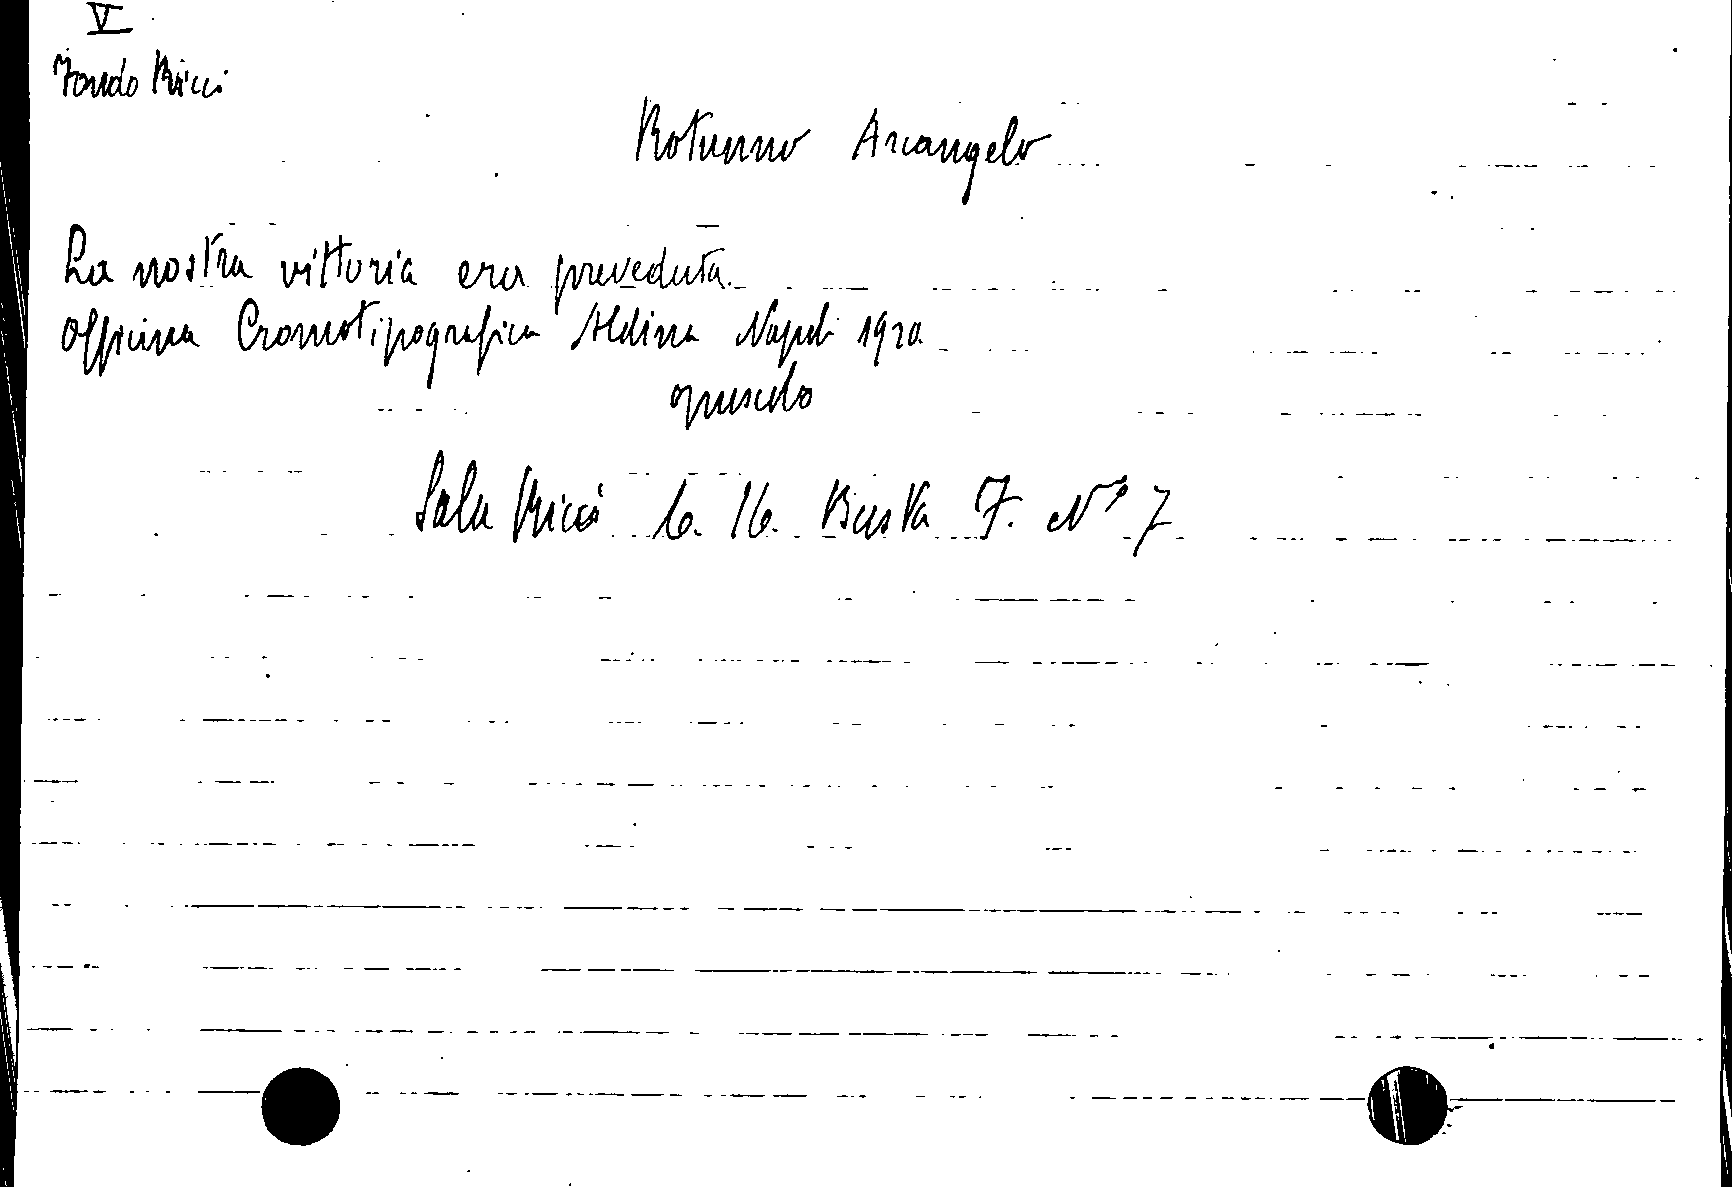 V
Fondo Ricci
Rotunno Arcangelo
La nostra vittoria era preveduta.
Officina Cromotipografica Aldina Napoli 1920.
opuscolo
Sala Ricci 6. 16. Busta 7. N° 7